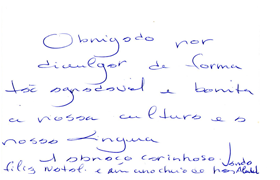 Obrigado por
divulgar de forma
tão agradável e bonita
a nossa cultura e a
nossa língua
1 abraço carinhoso.
feliz Natal. e um ano cheio de